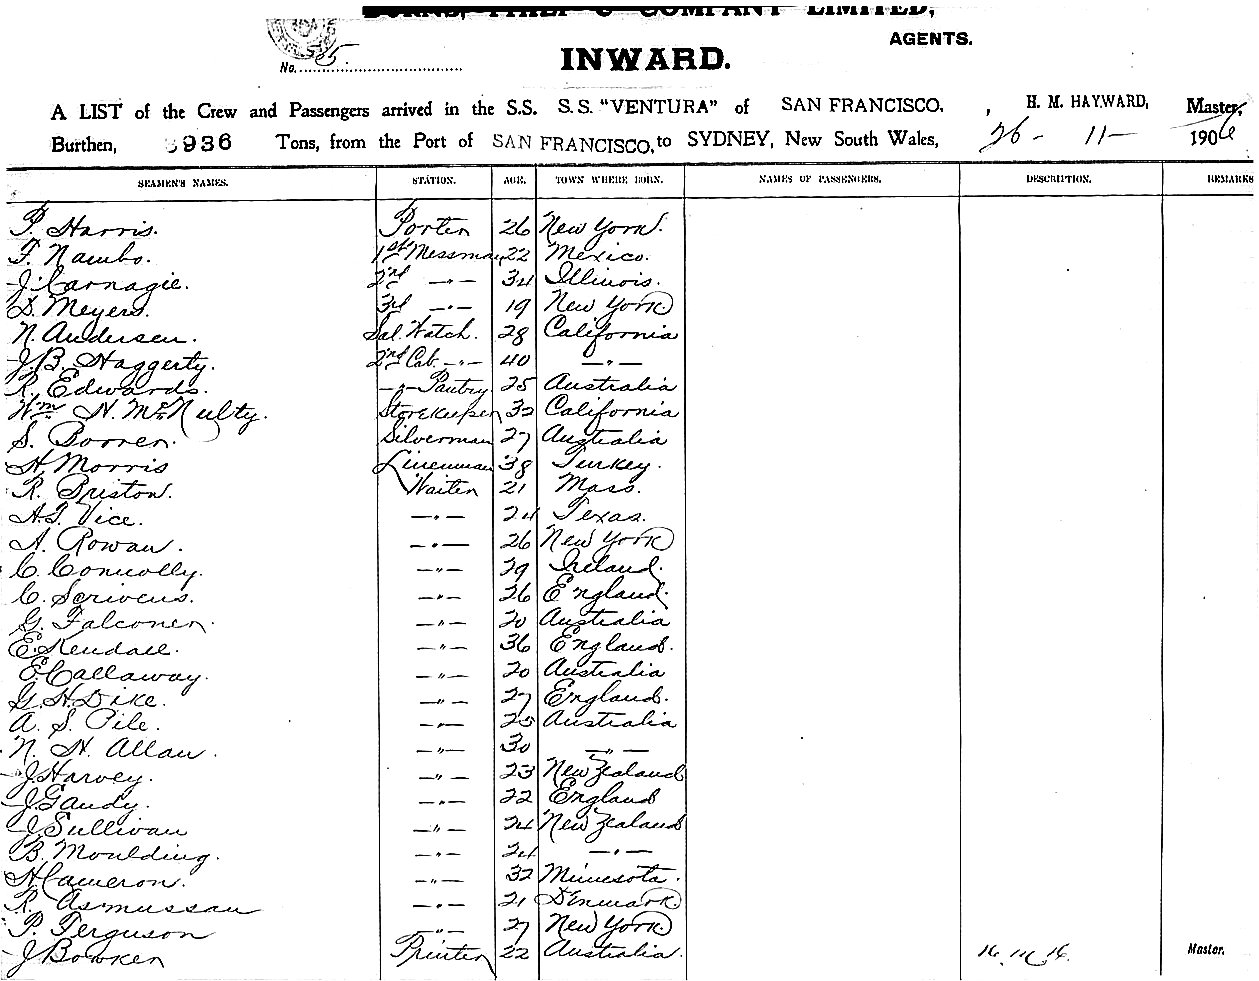 BURNS, PHILP & COMPANY LIMITED,
AGENTS.
No. 535
INWARD.
A LIST of the Crew and Passengers arrived in the S.S. S.S. "VENTURA" of SAN FRANCISCO. , H. M. HAYWARD, Master,
Burthen, 3936 Tons, from the Port of SAN FRANCISCO, to SYDNEY, New South Wales, 26 - 11 - 1906
SEAMEN'S NAMES. STATION. AGE. TOWN WHERE BORN. NAMES OF PASSENGERS. DESCRIPTION. REMARKS
P. Harris. Porter 26 New York.
F. Nambo. 1st Messman 22 Mexico.
J. Carnagie. 2nd —"— 34 Illinois.
D. Meyers. 3d —"— 19 New York
N. Andersen. Sal. Watch. 28 California
J. B. Haggerty. 2nd Cab. —"— 40 —"—
R. Edwards. —"— Pantry 25 Australia
Wm H. McNulty. Storekeeper 32 California
S. Borren. Silverman 27 Australia
H Morris Linenman 38 Turkey.
R. Briston. Waiter 21 Mass.
A. T. Vice. —"— 24 Texas.
A. Rowan. —"— 26 New York
C. Connolly. —"— 29 Ireland.
C. Scrivens. —"— 26 England.
G. Falconer. —"— 20 Australia
E. Kendall. —"— 36 England.
E. Callaway. —"— 20 Australia
G. H. Dike. —"— 27 England.
A. S. Pile. —"— 25 Australia
N. H. Allan. —"— 30 —"—
J. Harvey. —"— 23 New Zealand
J. Gaudy. —"— 22 England
J. Sullivan —"— 24 New Zealand
B. Moulding. —"— 24 —"—
H Cameron. —"— 32 Minnesota.
R. Asmussan —"— 21 Denmark
P. Ferguson —"— 27 New York
J Bowker Printer 22 Australia. Master.